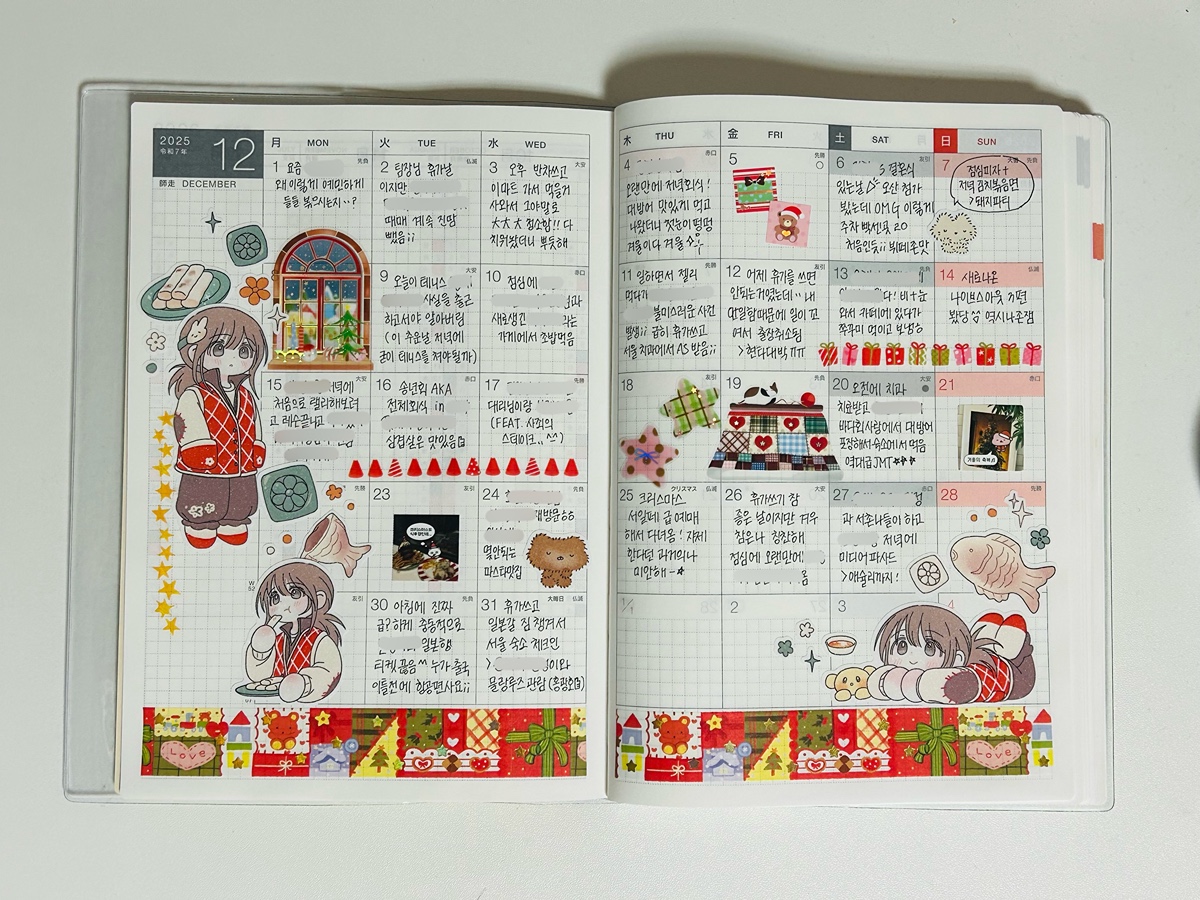 2025
令和7年
12
師走 DECEMBER
月 MON
火 TUE
水 WED
木 THU
金 FRI
土 SAT
日 SUN
1 요즘
先負
왜 이렇게 예민하게
들들 볶으시는지..?
2 팀장님 휴가날
仏滅
이지만
때매 계속 진땀
뺐음;;
3 오후 반차쓰고
大安
이마트 가서 먹을거
사와서 고야말로
大大大 청소함!! 다
치워놨더니 뿌듯해
4
赤口
오랜만에 저녁회식!
대방어 맛있게 먹고
나왔더니 첫눈이 펑펑
겨울이다 겨울
5
先勝
6 결혼식
友引
있는날 오산 첨가
봤는데 OMG 이렇게
주차 빡센곳 20
처음인듯;; 뷔페존맛
7
先負
점심피자 +
저녁 김치볶음면
> 돼지파티
9 오늘이 테니스
先勝
사실을 출근
하고서야 알아버림
(이 추운날 저녁에
테니스를 쳐야될까)
10 점심에
赤口
새로생긴 라는
가게에서 초밥먹음
11 일하면서 젤리
先勝
먹다가
불미스러운 사건
발생!! 급히 휴가쓰고
서울 치과에서 AS 받음;;
12 어제 휴가를 쓰면
友引
안되는거였는데.. 내
앞일땜문에 일이 꼬
여서 출장취소됨
> 현타대박 ㅠㅠ
13
先負
다! 비+눈
와서 카페에 있다가
쭈꾸미 먹고 보냉
14 새로나온
仏滅
나이브스아웃 3편
봤당 역시나존잼
15 저녁에
大安
처음으로 랠리해보려
고 레슨끝나고
16 송년회 AKA
赤口
전체회식 in
삼겹살은 맛있음
17
先勝
대리님이랑
(FEAT. 사회의
스테이크.. ^^)
18
友引
19
先負
20 오전에 치과
仏滅
치료받고
바다회사랑에서 대방어
포장해서 숙소에서 먹음
역대급JMT
21
赤口
겨울의 축복
先勝
23
友引
24
先負
재방문
멀안되는
파스타맛집
25 크리스마스
クリスマス 仏滅
서일페 급 예매
해서 다녀옴! 자제
한다던 과거의나
미안해 - ★
26 휴가쓰기 참
大安
좋은 날이지만 겨우
참은나 칭찬해
점심에 오랜만에
27 정
赤口
과 서촌나들이 하고
저녁에
미디어파사드
> 애슐리까지!
28
先勝
W
52
友引
30 아침에 진짜
先負
급?하게 충동적으로
일본행
티켓 끊음 ^^ 누가 출국
이틀전에 항공편사요;;
31 휴가쓰고
大晦日 仏滅
일본갈 짐 챙겨서
서울 숙소 체크인
> 이와
물랑루즈 관람
1/1
2
3
4
Love
Love